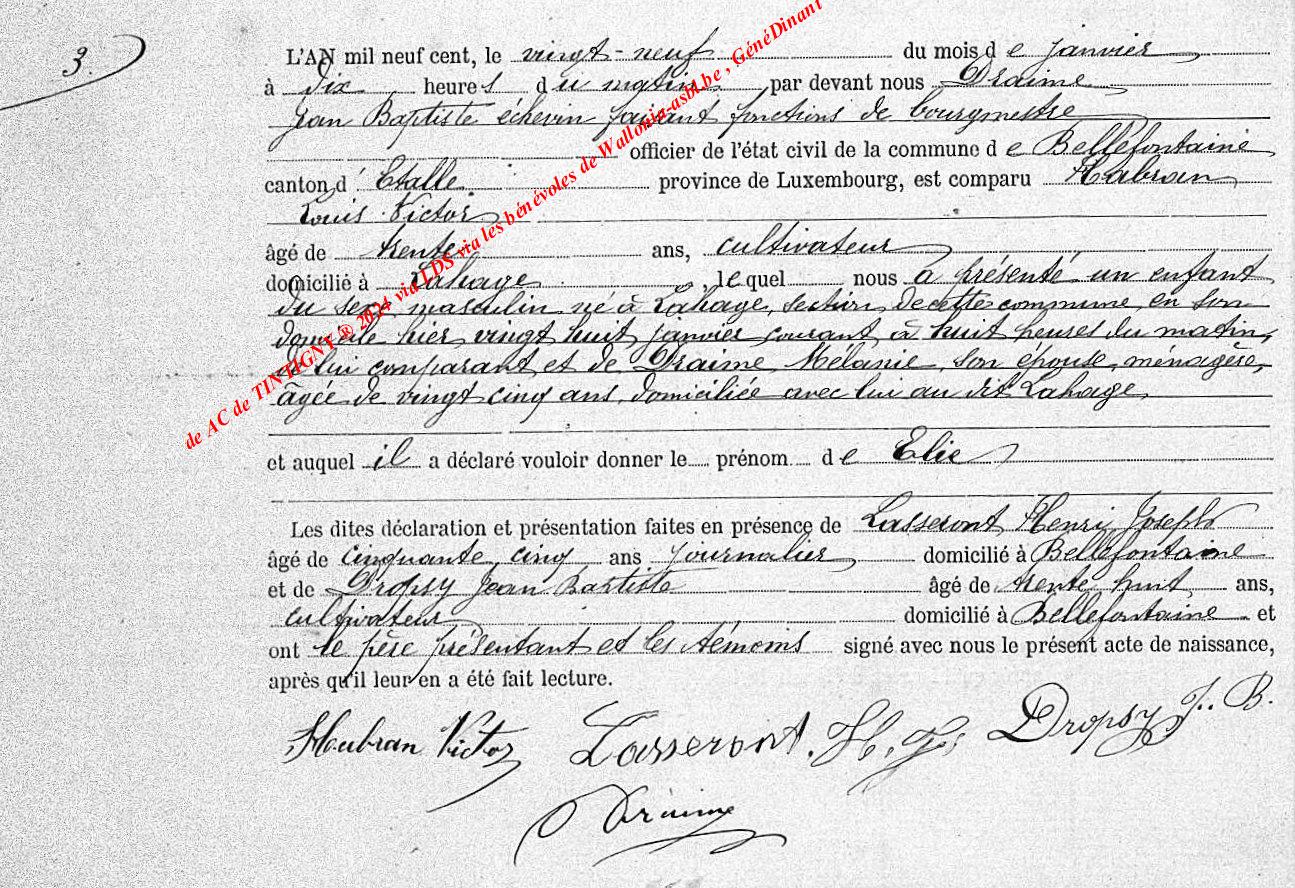 3.
L'AN mil neuf cent, le vingt-neuf du mois de janvier
à dix heures du matin, par devant nous Draime
Jean Baptiste échevin faisant fonctions de bourgmestre
officier de l'état civil de la commune de Bellefontaine
canton d'Etalle province de Luxembourg, est comparu Habran
Louis Victor
âgé de trente ans, cultivateur
domicilié à Lahage lequel nous a présenté un enfant
du sexe masculin né à Lahage, section de cette commune, en son
domicile hier vingt huit janvier courant à huit heures du matin,
de lui comparant et de Draime Mélanie, son épouse, ménagère,
âgée de vingt cinq ans, domiciliée avec lui au dit Lahage
et auquel il a déclaré vouloir donner le prénom de Elie
Les dites déclaration et présentation faites en présence de Lasseront Henri Joseph
âgé de cinquante cinq ans journalier domicilié à Bellefontaine
et de Dropsy Jean Baptiste âgé de trente huit ans,
cultivateur domicilié à Bellefontaine et
ont le père présentant et les témoins signé avec nous le présent acte de naissance,
après qu'il leur en a été fait lecture.
Habran Victor Lasseront. H. J. Dropsy J. B.
Draime
de AC de TINTIGNY ® 2024 via LDS via les bénévoles de Wallonia-asbl.be , GénéDinant